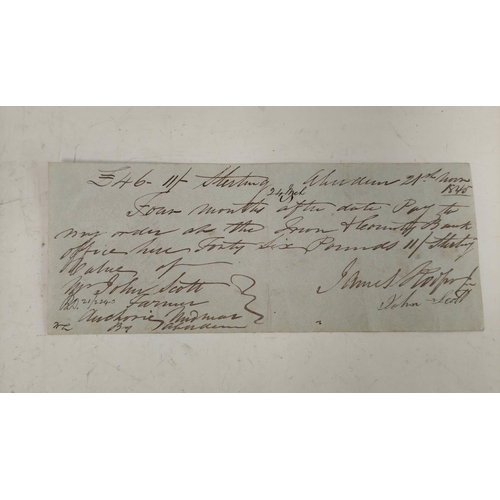 £46- 11/ Sterling Aberdeen 21st Novr
1845
Four months after date Pay to
my order at the Town & County Bank
office here Forty Six Pounds 11/ Sterling
Value of
Mr John Scott
Farmer
Auchorie Midmar
By Aberdeen
James
John Scott